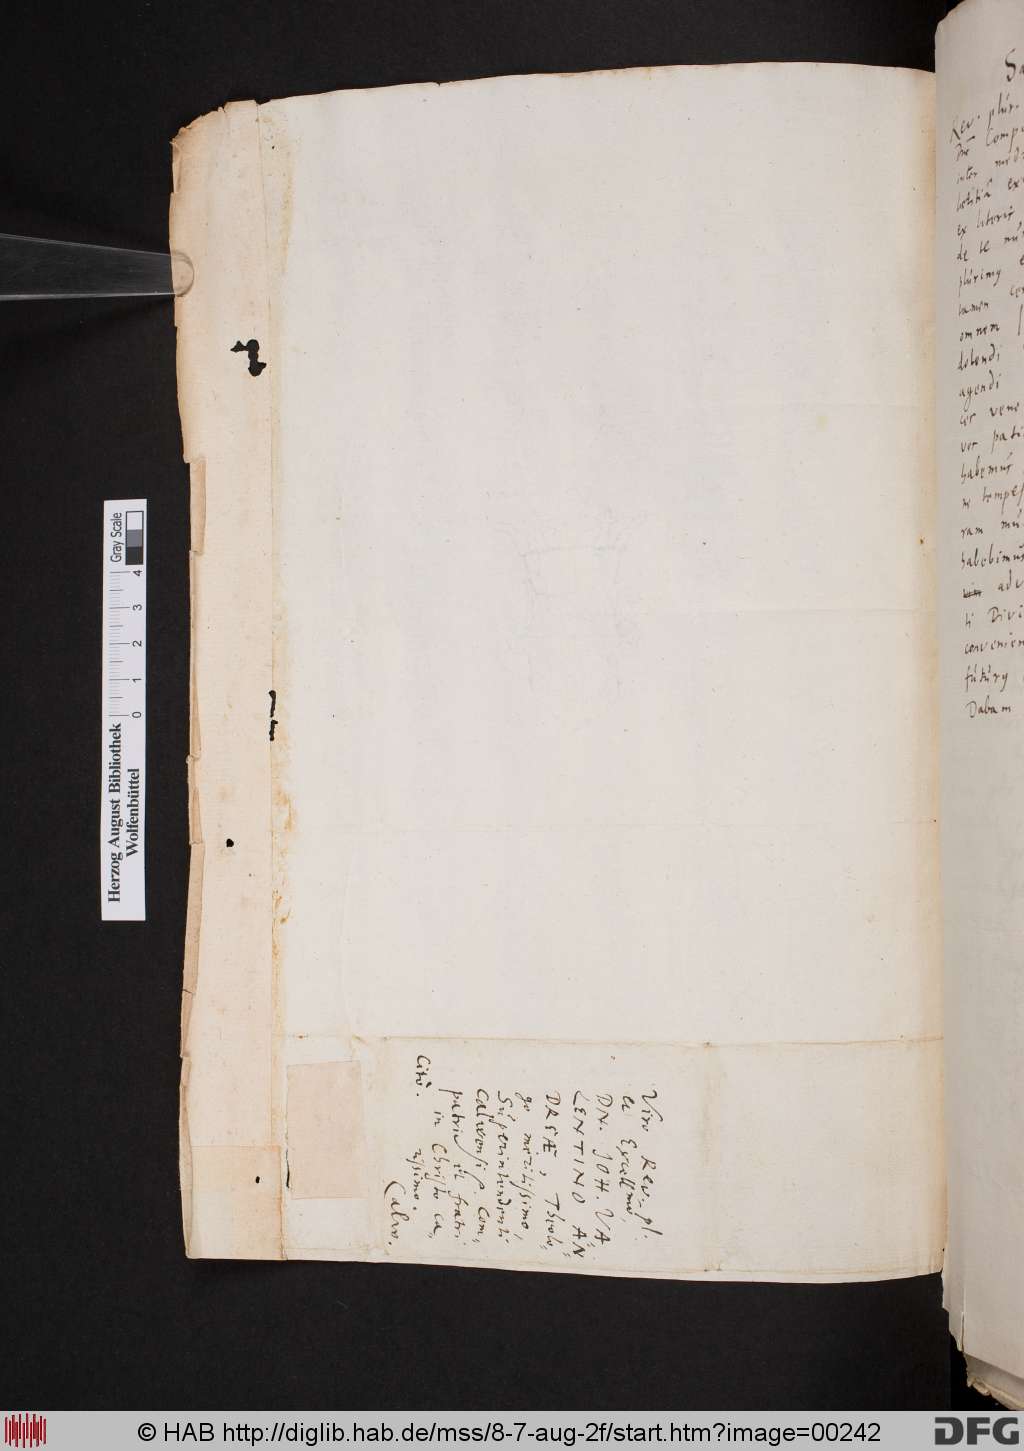 Viro Rev. pl.
et Excellmo,
DN. JOH. VA=
LENTINO AN=
DREÆ, Theolo,
go meritissimo,
Superintendenti
Calwensi. Com,
patri et fratri
in Christo ca,
rissimo.
Cito.
Calvv.
Rev. plur.
Dne Comp
inter
lætitiâ ex
ex literis
de te
plurimy
tamen
omnem
dolendi
agendi
vene
pati
habemus
tempes
ram
habebimus
adv
ti Divi
convenien
futury
Dabam
Herzog August Bibliothek
Wolfenbüttel
0 1 2 3 4
Gray Scale
© HAB http://diglib.hab.de/mss/8-7-aug-2f/start.htm?image=00242
DFG